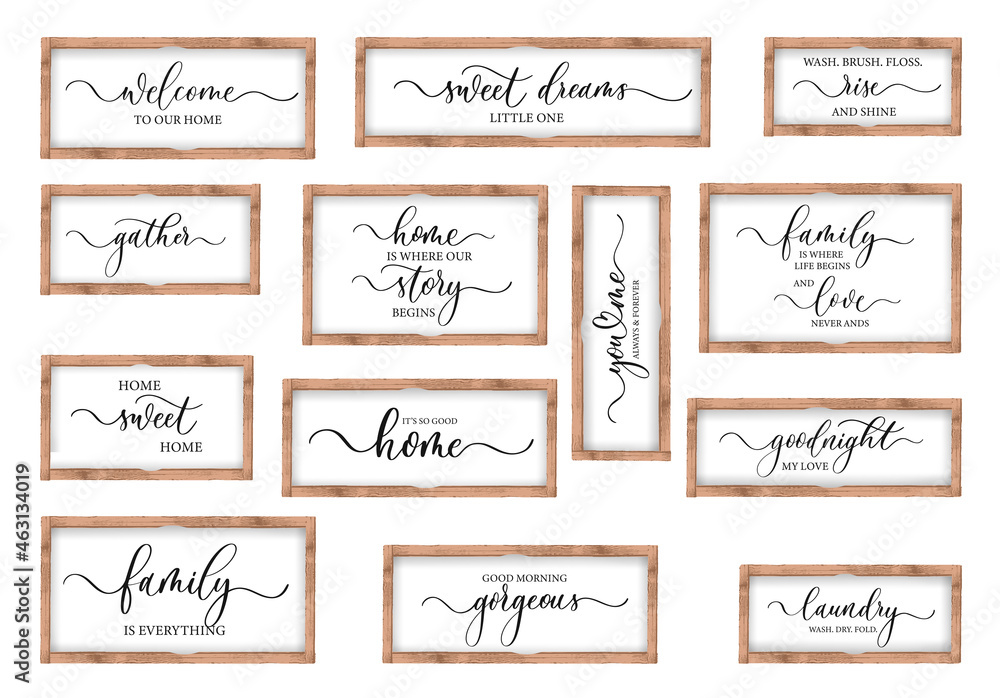 welcome
TO OUR HOME
sweet dreams
LITTLE ONE
WASH. BRUSH. FLOSS.
rise
AND SHINE
gather
home
IS WHERE OUR
story
BEGINS
you me
ALWAYS & FOREVER
family
IS WHERE
LIFE BEGINS
AND
love
NEVER ANDS
HOME
sweet
HOME
IT'S SO GOOD
home
goodnight
MY LOVE
family
IS EVERYTHING
GOOD MORNING
gorgeous
laundry
WASH. DRY. FOLD.
Adobe Stock | #463134019